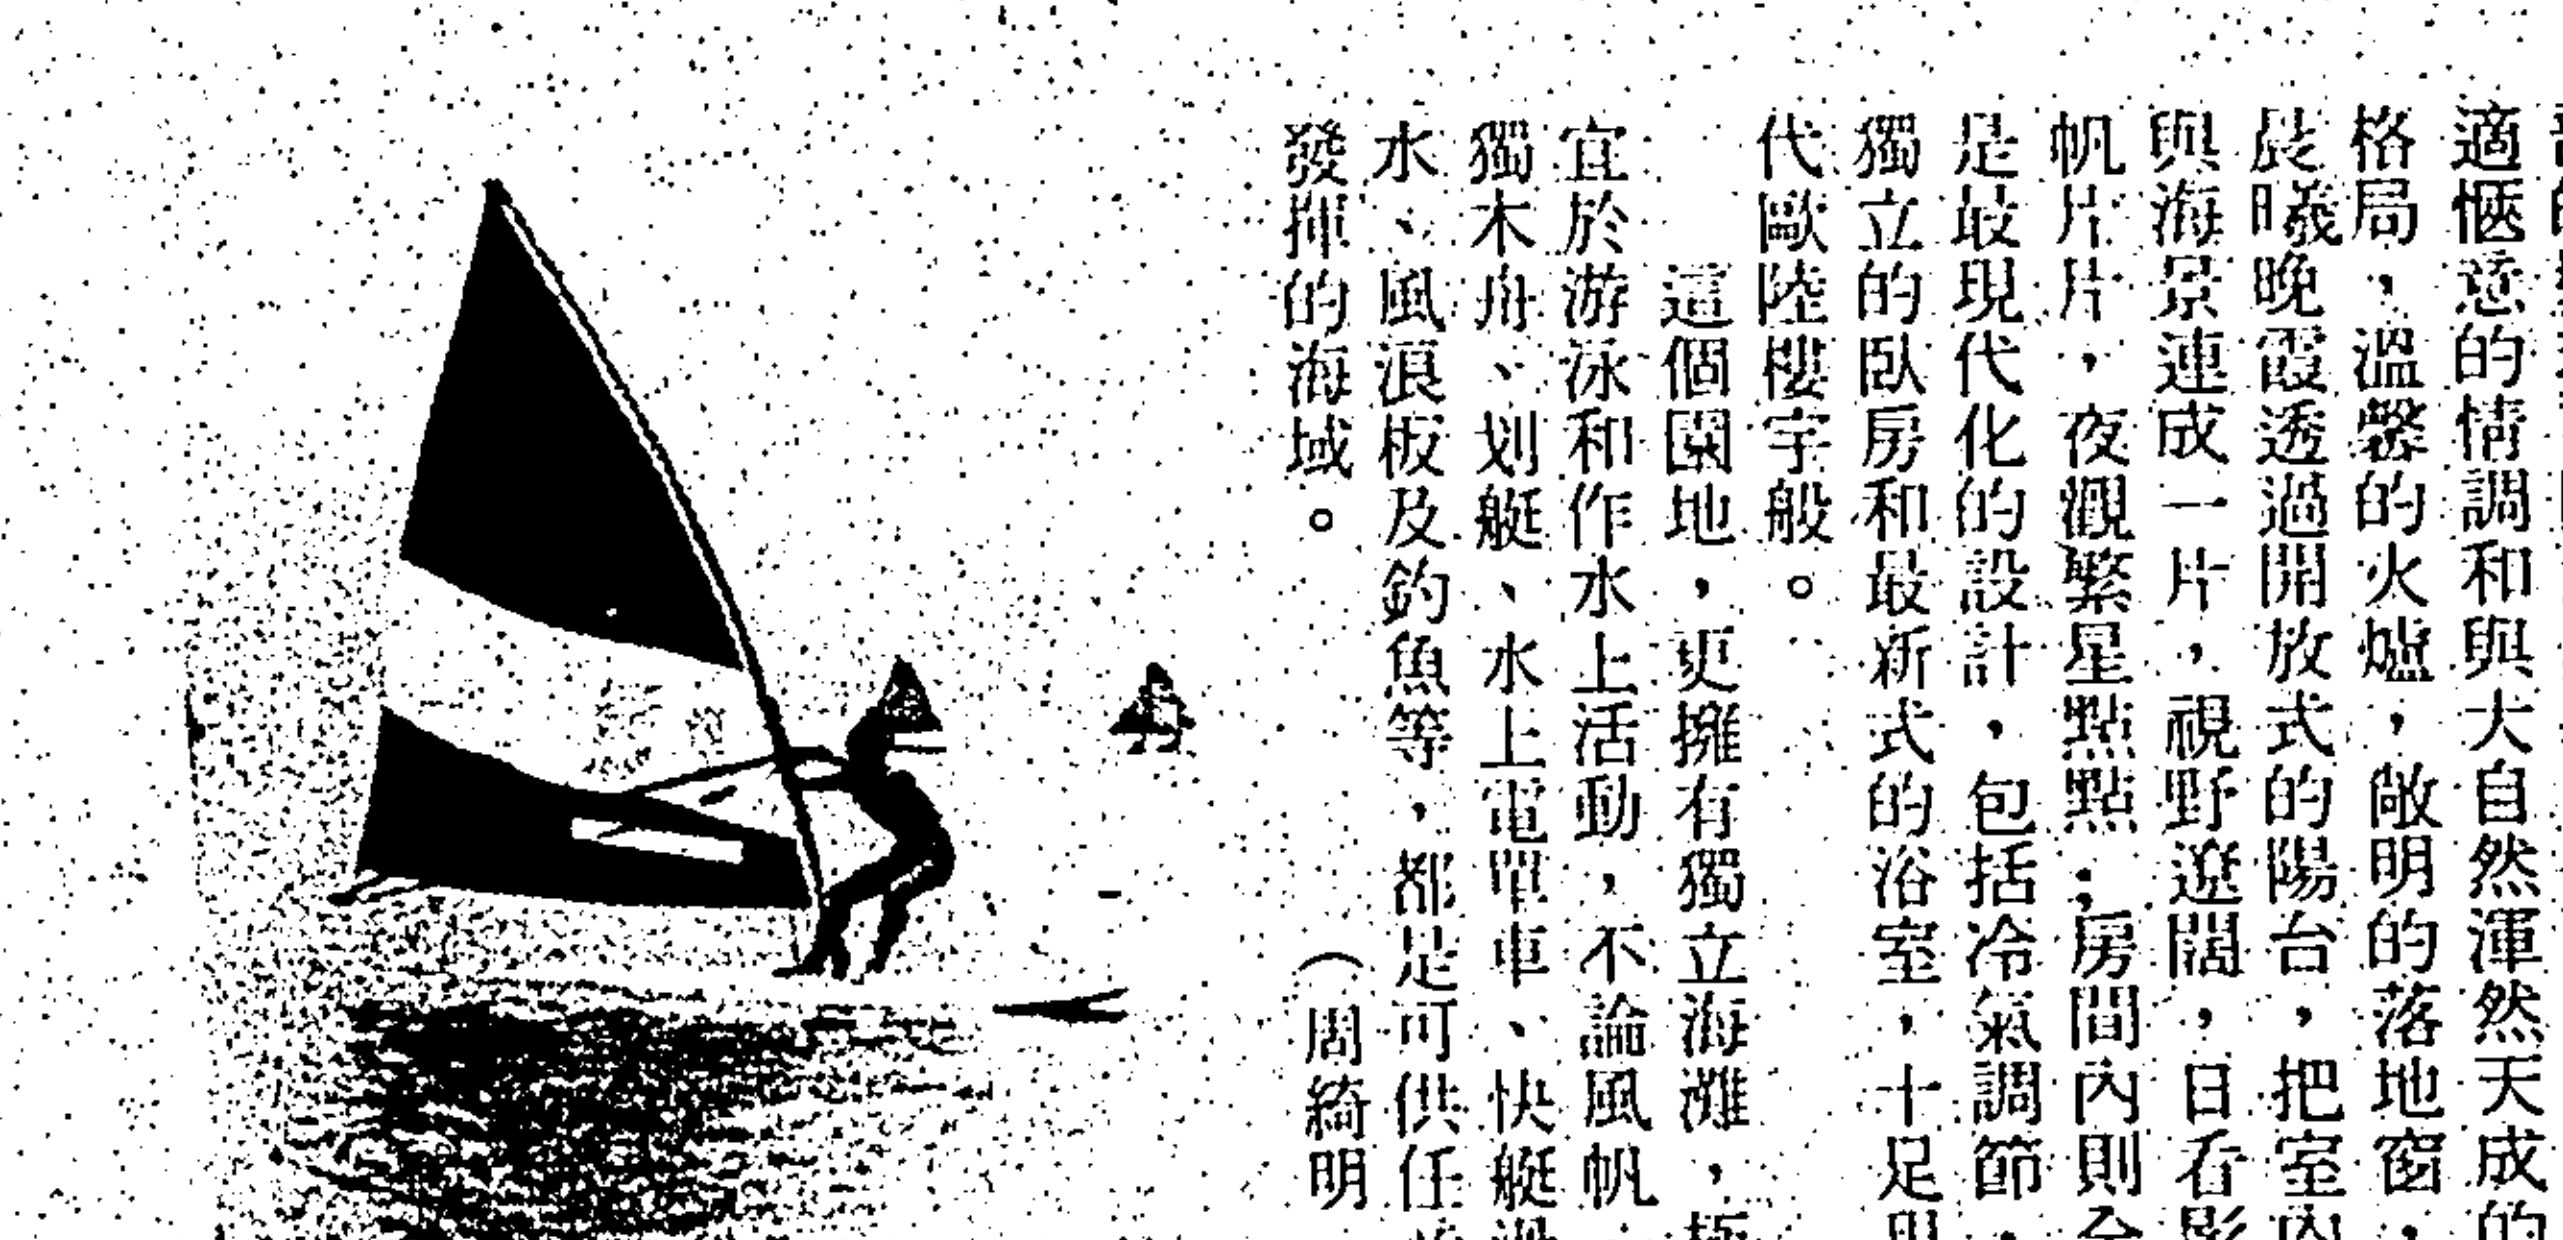 適愜意的情調和與大自然渾然天成的
格局，溫馨的火爐，敞明的落地窗，
晨曦晚霞透過開放式的陽台，把室內
與海景連成一片，視野遼闊，日看影
帆片片，夜觀繁星點點；房間內則全
是最現代化的設計，包括冷氣調節，
獨立的臥房和最新式的浴室，十足現
代歐陸樓宇般。
這個園地，更擁有獨立海灘，極
宜於游泳和作水上活動，不論風帆、
獨木舟、划艇、水上電單車、快艇滑
水、風浪板及釣魚等，都是可供任意
發揮的海域。
（周綺明